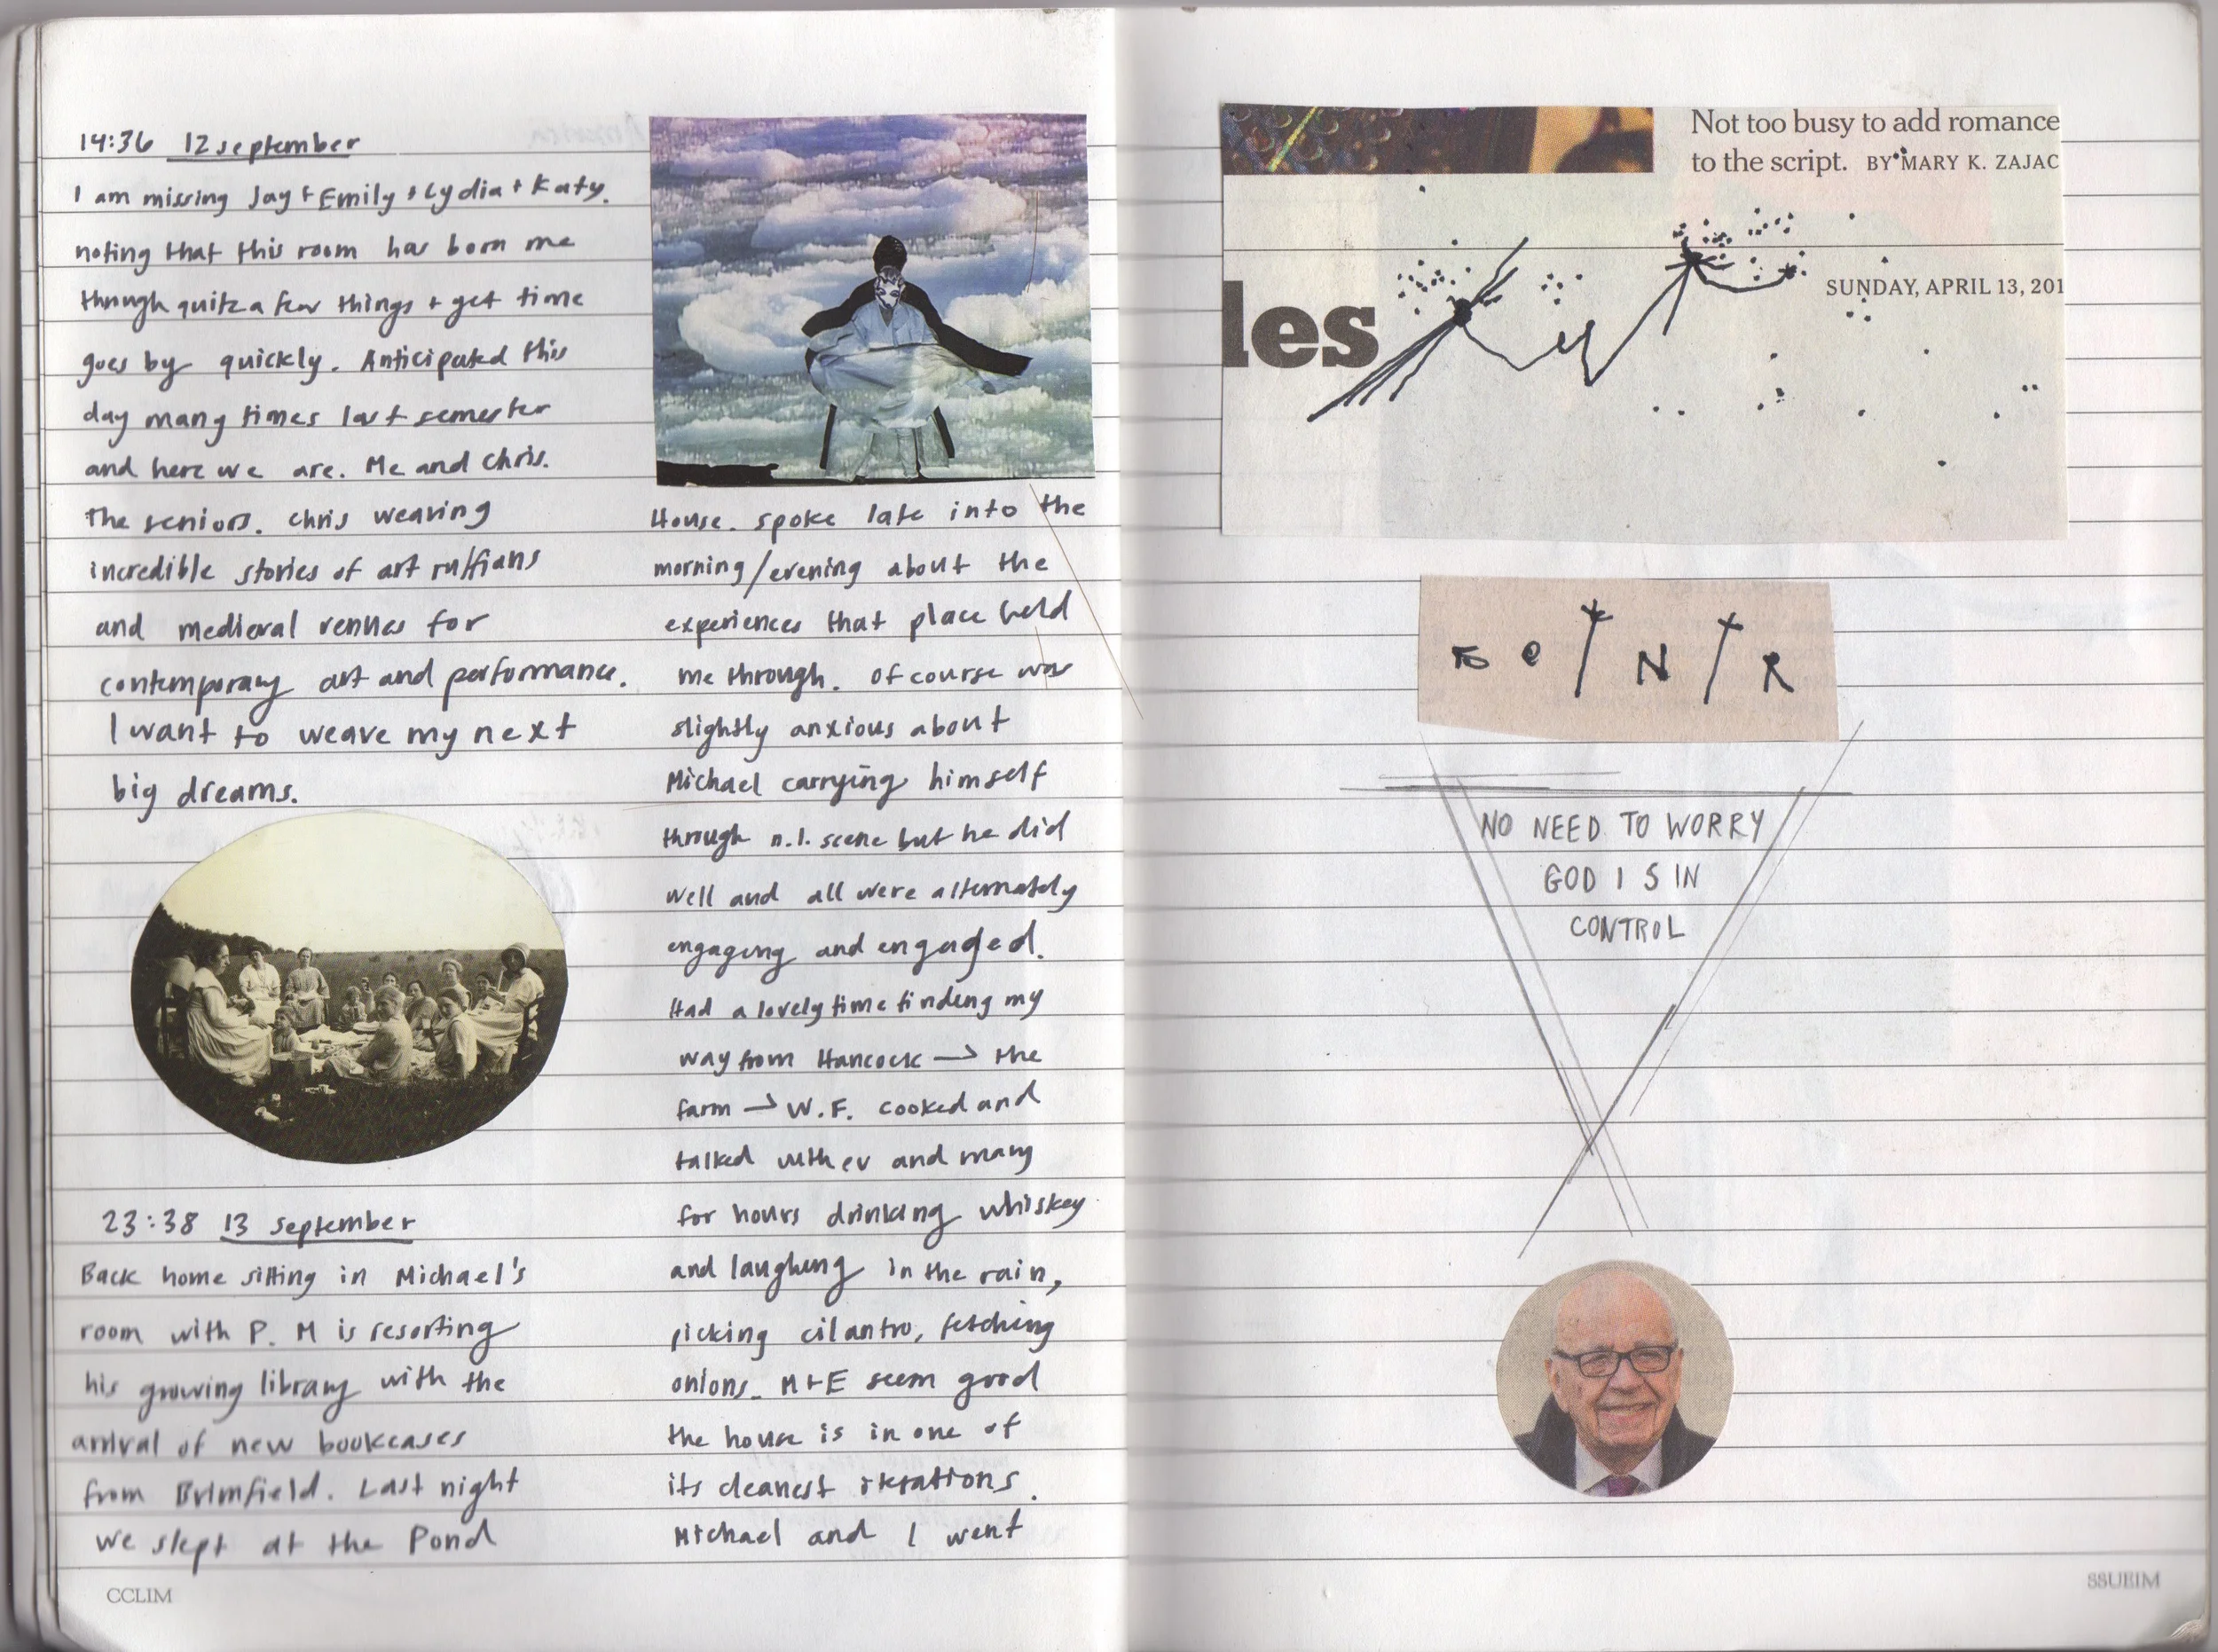 14:36 12 september
I am missing Jay + Emily + Lydia + Katy.
noting that this room has born me
through quite a few things + yet time
goes by quickly. Anticipated this
day many times last semester
and here we are. Me and Chris.
The seniors. Chris weaving
incredible stories of art ruffians
and medieval venues for
contemporary art and performance.
I want to weave my next
big dreams.
23:38 13 september
Back home sitting in Michael's
room with P. M is resorting
his growing library with the
arrival of new bookcases
from Brimfield. Last night
we slept at the Pond
House. spoke late into the
morning/evening about the
experiences that place held
me through. of course was
slightly anxious about
Michael carrying himself
through n.l. scene but he did
well and all were alternately
engaging and engaged.
Had a lovely time finding my
way from Hancock → the
farm → W.F. cooked and
talked with ev and many
for hours drinking whiskey
and laughing in the rain,
picking cilantro, fetching
onions. M+E seem good
the house is in one of
its cleanest iterations.
Michael and I went
CCLIM
Not too busy to add romance
to the script. BY MARY K. ZAJAC
les
SUNDAY, APRIL 13, 201
NO NEED TO WORRY
GOD IS IN
CONTROL
SSUEIM